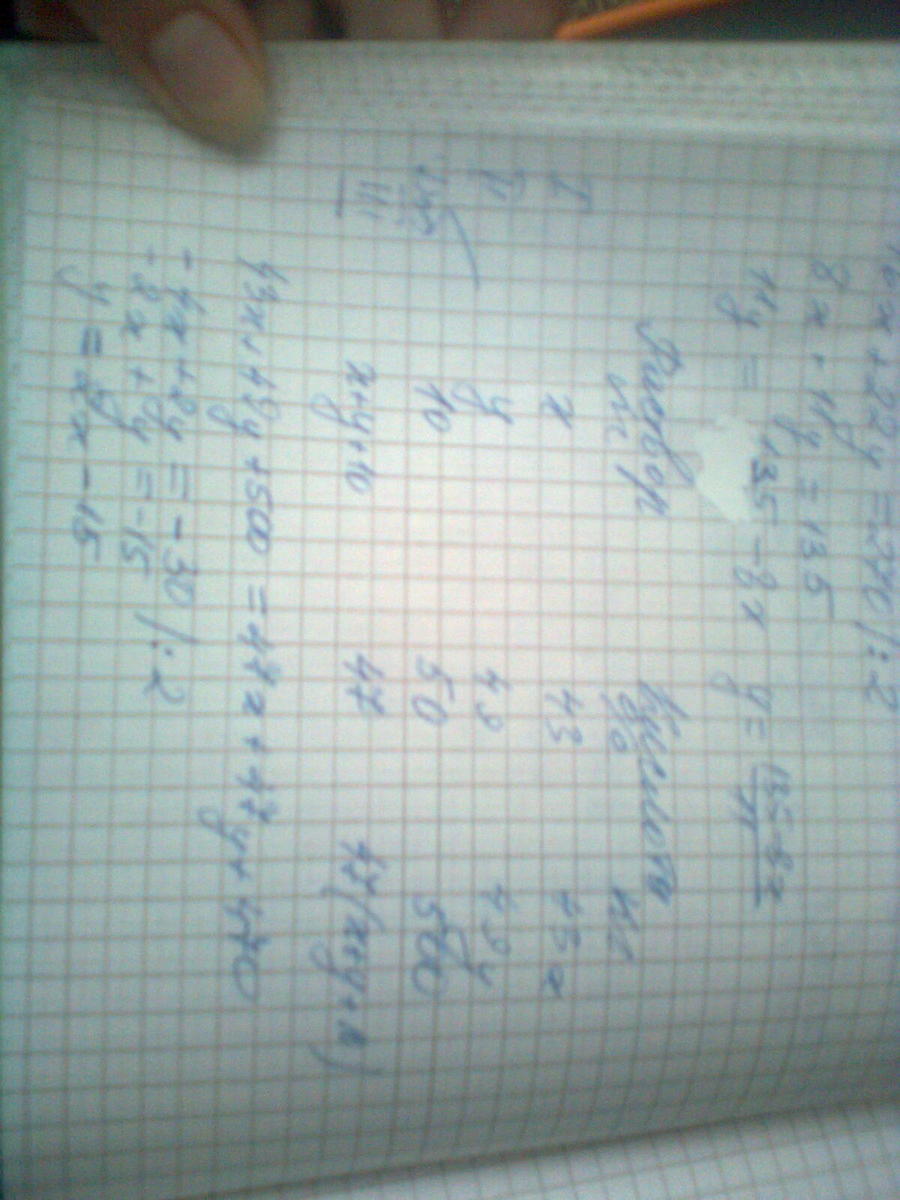 16x + 22y = 270 /:2
8x + 11y = 135
11y = 135 - 8x y = (135-8x)/11
Раствор Кислота
кг % кг
I x 43 43x
II y 49 49y
10 50 500
III x+y+10 47 47(x+y+10)
43x + 49y + 500 = 47x + 47y + 470
-4x + 2y = -30 /:2
-2x + y = -15
y = 2x - 15